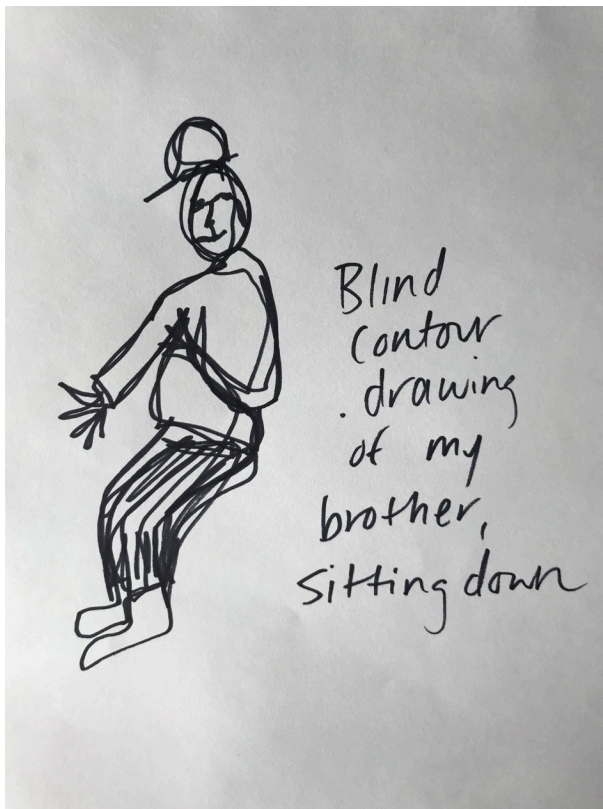 Blind
contour
drawing
of my
brother,
sitting down